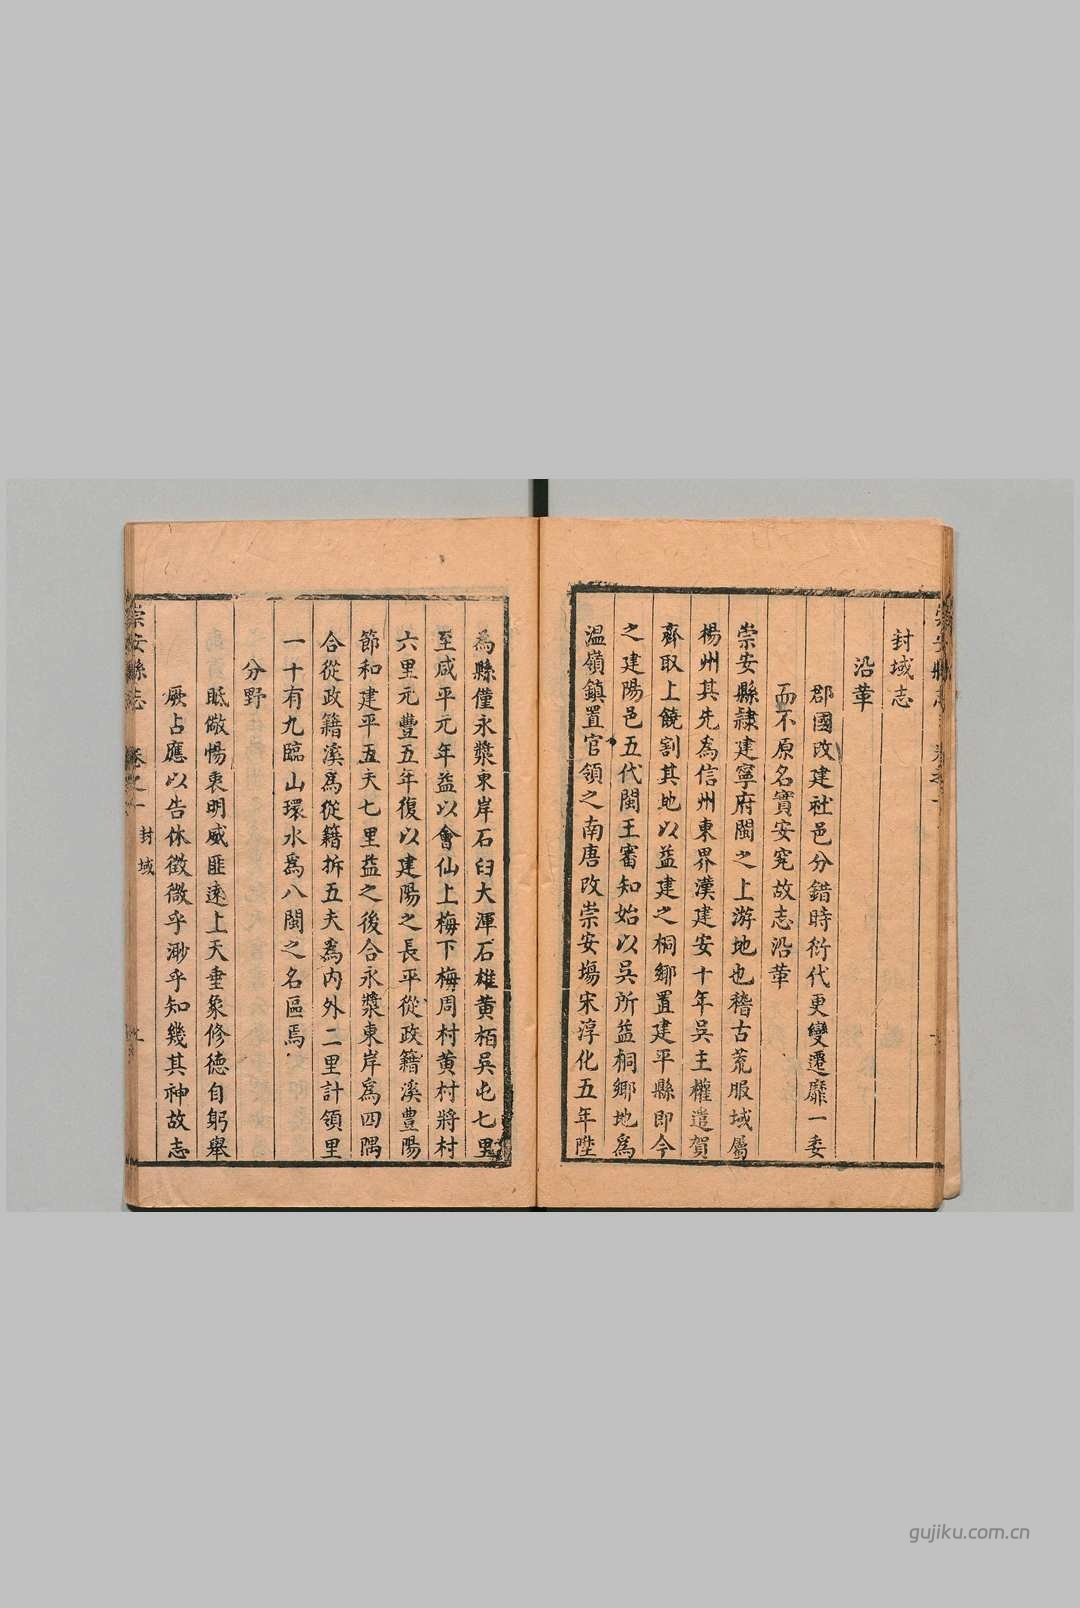 封域志
沿革
郡國改建社邑分錯時衍代更變遷靡一委
而不原名實安究故志沿革
崇安縣隷建寧府閩之上游地也稽古荒服域屬
楊州其先為信州東界漢建安十年吳主權遣賀
齊取上饒割其地以益建之桐鄉置建平縣即今
之建陽邑五代閩王審知始以吳所益桐鄉地為
温嶺鎮置官領之南唐改崇安塲宋淳化五年陞
為縣僅永漿東岸石臼大渾石雄黃栢吳屯七里
至咸平元年益以會仙上梅下梅周村黃村將村
六里元豐五年復以建陽之長平從政籍溪豊陽
節和建平五夫七里益之後合永漿東岸為四隅
合從政籍溪為從籍拆五夫為內外二里計領里
一十有九臨山環水為八閩之名區焉
分野
眂儆惕衷明威匪遠上天垂象修德自躬舉
厥占應以告休徵微乎渺乎知幾其神故志
崇安縣志 卷之一 封域
gujiku.com.cn